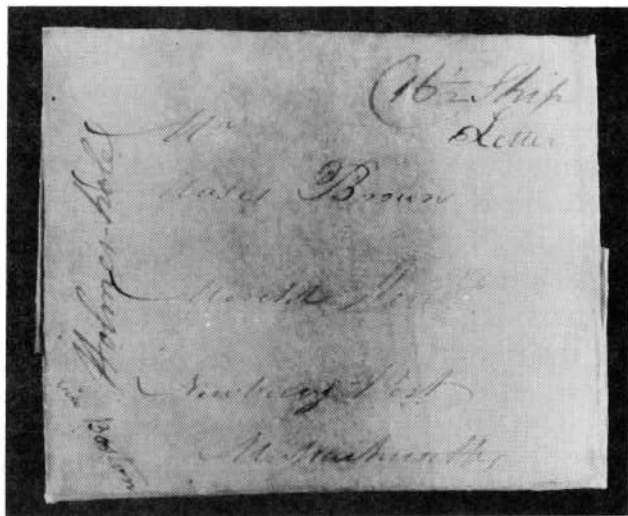 16½ Ship
Letter
Mr
Moses Brown
Newbury Port
Massachusetts
Holmes-hole
via Boston